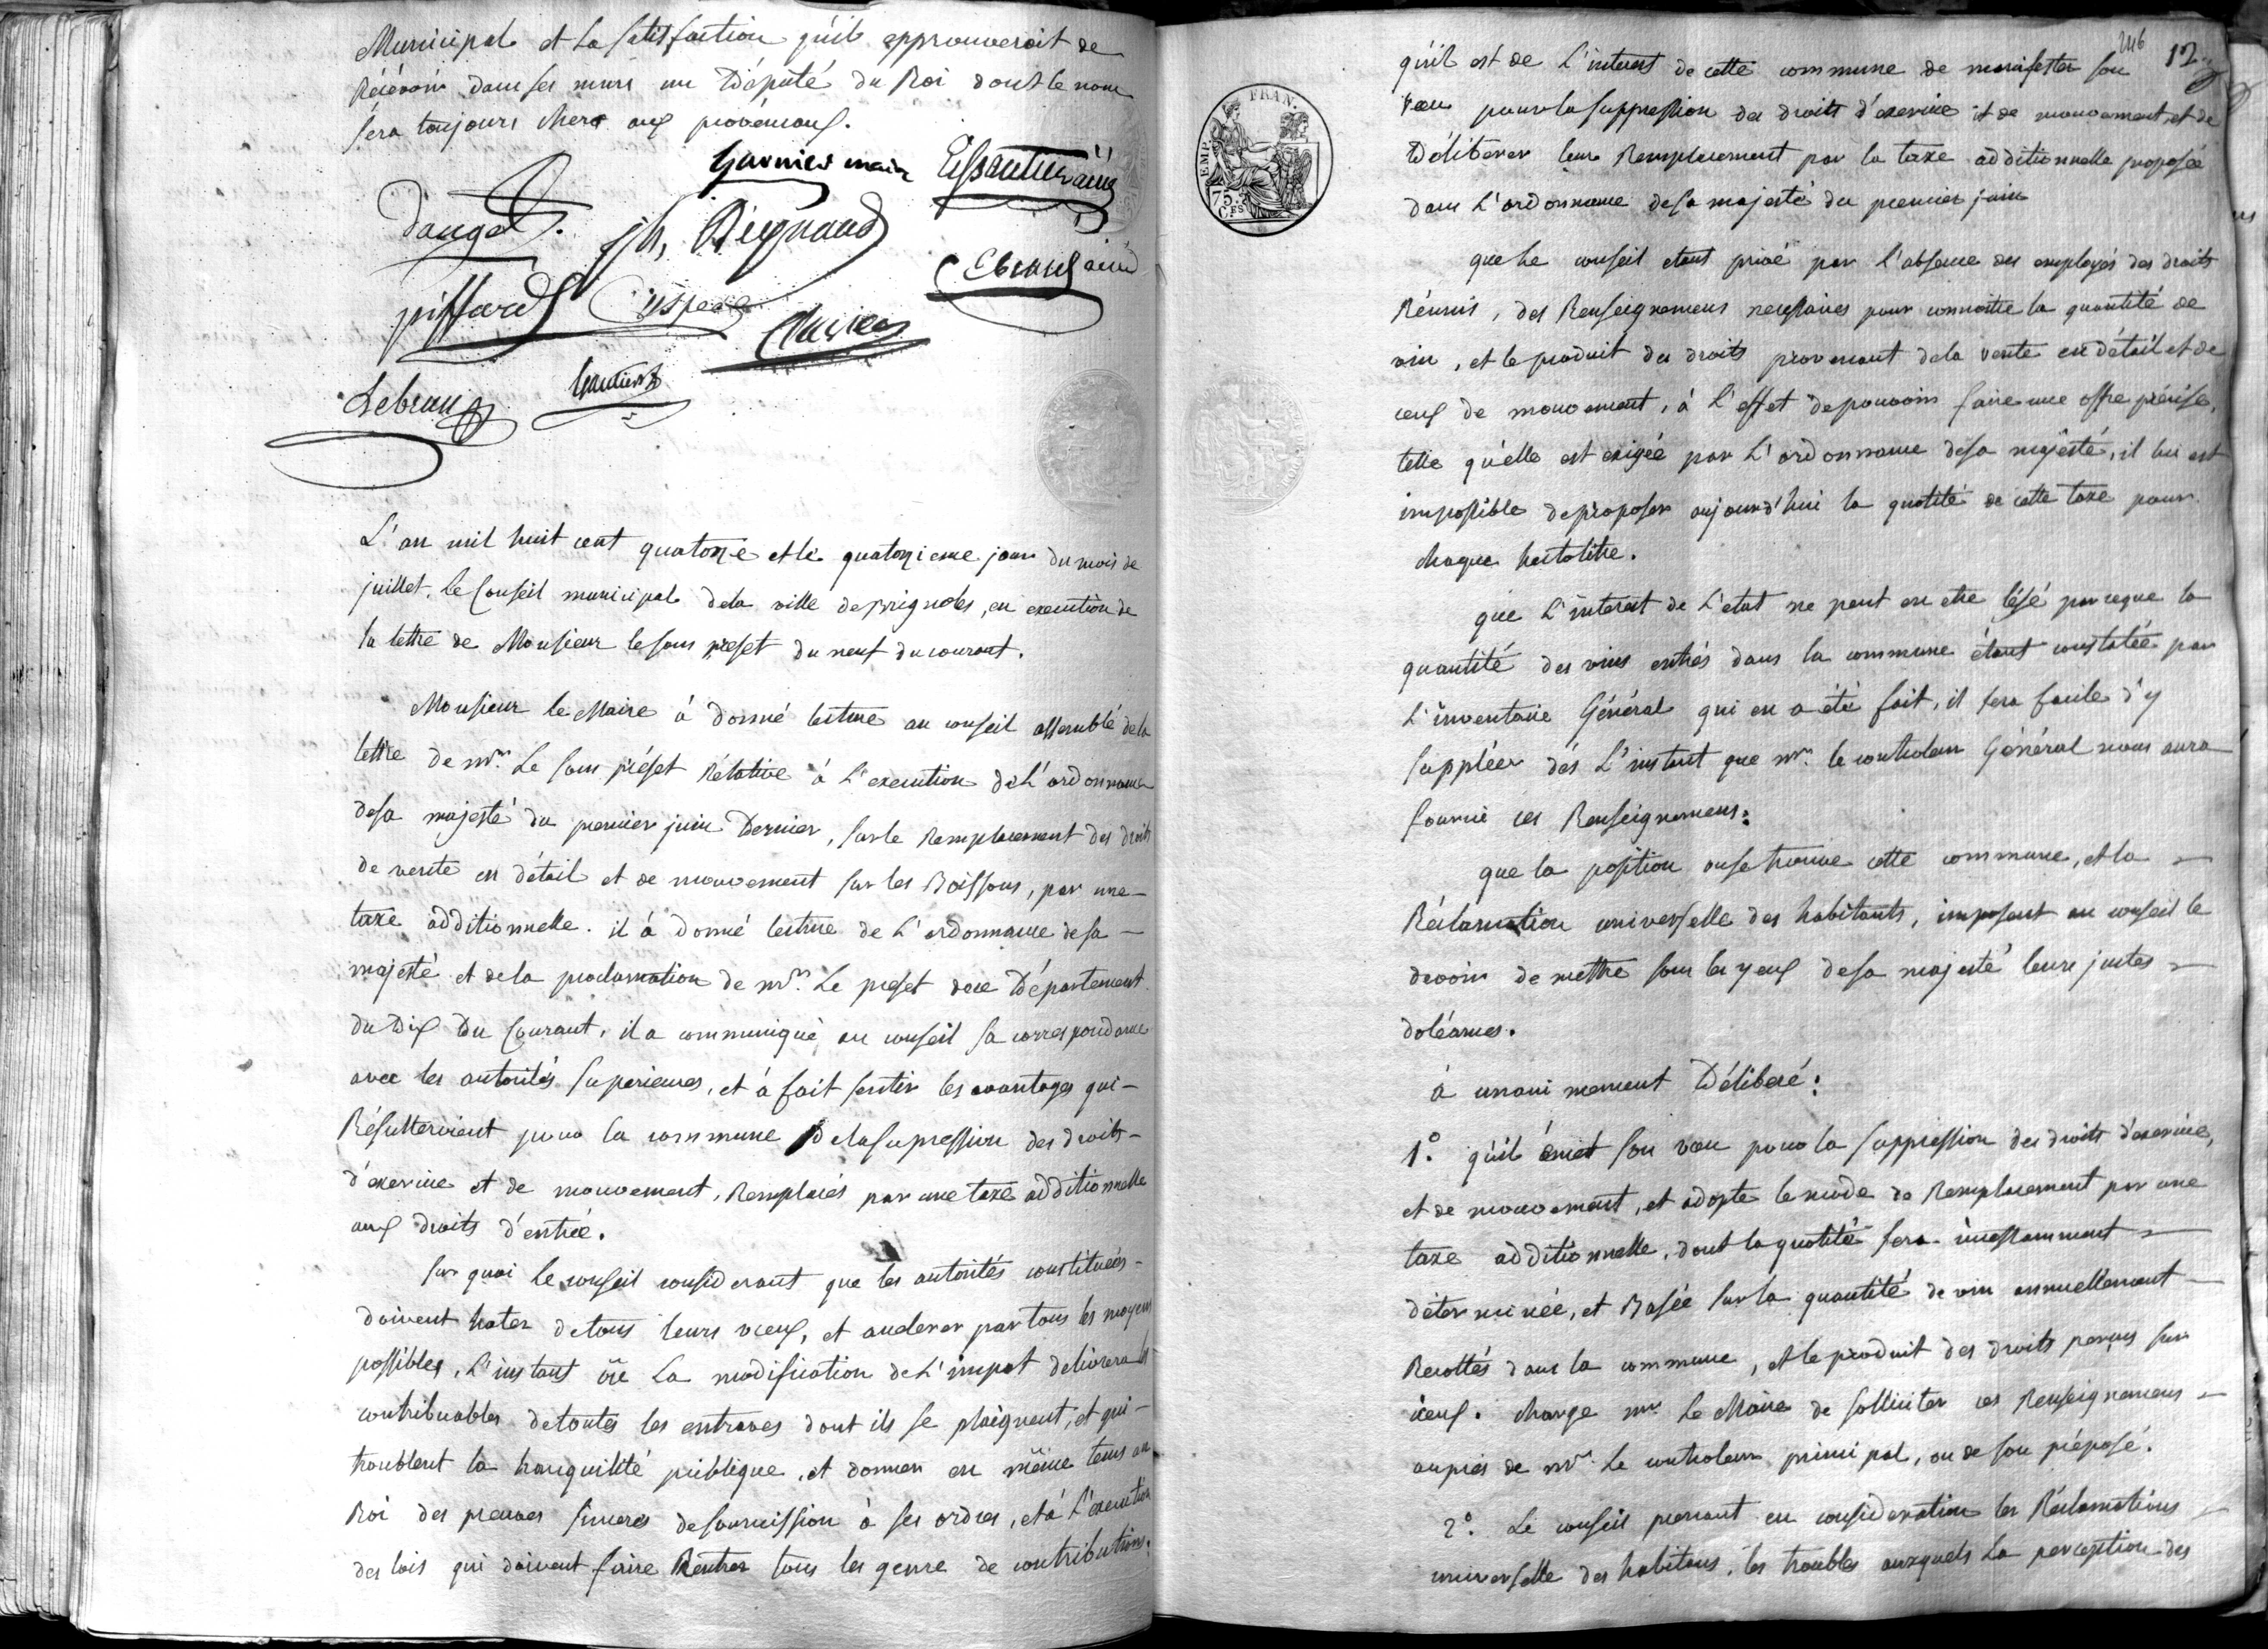 Municipal et la satisfaction qu'il epprouveroit de
Récévoir dans ses murs un Député du Roi dont le nom
séra toujours cher aux provencaux.
Garnier maire
Eissautier ainé
dauget
jh, Reynaud
piffard
Lebrun
Gautier
L'an mil huit cent quatorze et le quatorzieme jour du mois de
juillet. Le Conseil municipal dela ville de Brignoles, en execution de
la lettre de Monsieur le sous prefet du neuf du courant.
Monsieur le Maire à donné lecture au conseil assemblé dela
lettre de mr. Le sous préfet Rélative à L'execution de L'ordonnance
desa majesté du premier juin Dernier, sur le Remplacement des droits
de vente en détail et de mouvement sur les Boissons, par une
taxe additionnelle. il à donné lecture de L'ordonnance desa
majesté et dela proclamation de mr. Le prefet dece Département
du Dix Du Courant, il a communiqué au conseil sa correspondance
avec les autorités superieures, et à fait sentir les avantages qui
Résulteroient pour la commune Delasupression des droits
d'exercice et de mouvement, Remplacés par une taxe additionnelle
aux droits d'entrée.
sur quoi le conseil considerant que les autorités constituées
doivent hater detous leurs voeux, et accelerer par tous les moyens
possibles, L'instant où La modification de L'impot delivrera les
contribuables detoutes les entraves dont ils se plaignent, et qui
troublent la tranquilité publique, et donner en même tems au
Roi des preuves sinceres desoumission à ses ordres, et à L'execution
des lois qui doivent faire Rentrer tous les genre de contributions.
246 12
qu'il est de L'interet de cette commune de manifester son
voeu pour la suppression des droits d'exercice et de mouvement et de
Délibérer leur Remplacement par la taxe additionnelle proposée
dans L'ordonnance desa majesté du premier juin
FRAN.
EMP.
75.
CES
que Le conseil etant privé par l'absence des employés des droits
Réunis, des Renseignemens necessaires pour connoitre la quantité de
vin, et le produit des droits provenant dela vente en détail et de
ceux de mouvement, à L'effet depouvoir faire une offre précise,
telle qu'elle est exigée par L'ordonnance desa majesté, il lui est
impossible deproposer aujourd'hui la quotité de cette taxe pour
chaque hectolitre.
que L'interet de L'etat ne peut en etre lésé parceque la
quantité des vins entrés dans la commune étant constatée par
L'inventaire Général qui en a été fait, il sera facile d'y
suppléer dés L'instant que mr. le controleur Général nous aura
fourni ces Renseignemens:
que la position ouse trouve cette commune, et la
Réclamation universelle des habitants, imposent au conseil le
devoir de mettre sous les yeux desa majesté leurs justes
doléances.
à unanimement Délibéré:
1°. qu'il émet son voeu pour la suppression des droits d'exercice,
et de mouvement, et adopte le mode de Remplacement par une
taxe additionnelle, dont la quotité sera incessamment
déterminée, et Basée sur la quantité de vin annuellement
Recoltés dans la commune, et le produit des droits perçus sur
iceux. charge mr. le Maire de solliciter ces Renseignemens
auprès de mr. Le controleur principal, ou de son préposé.
2°. Le conseil prenant en consideration les Réclamations
universelle des habitans, les troubles auxquels La perception des